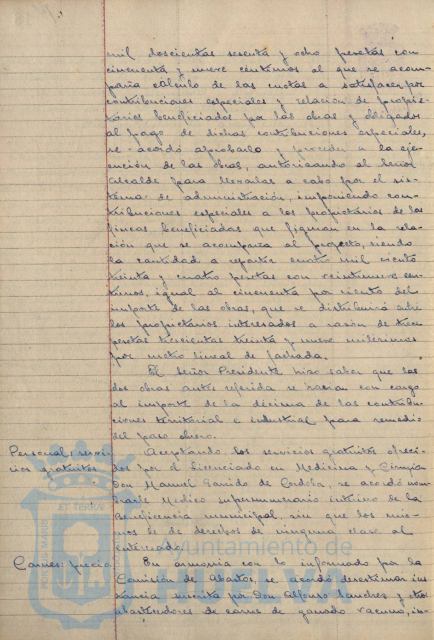 mil doscientas sesenta y ocho pesetas con
cincuenta y nueve céntimos al que se acom-
paña cálculo de las cuotas a satisfacer por
contribuciones especiales y relación de propie-
tarios beneficiados por las obras y obligados
al pago de dichas contribuciones especiales,
se acordó aprobarlo y proceder a la eje-
cución de las obras, autorizando al Señor
Alcalde para llevarlas a cabo por el sis-
tema de administración, imponiendo con-
tribuciones especiales a los propietarios de las
fincas beneficiadas que figuran en la rela-
ción que se acompaña al proyecto, siendo
la cantidad a repartir cuatro mil ciento
treinta y cuatro pesetas con veintinueve cen-
timos, igual al cincuenta por ciento del
importe de las obras, que se distribuirá entre
los propietarios interesados a razón de trece
pesetas trescientas treinta y nueve milésimas
por metro lineal de fachada.
El Señor Presidente hizo saber que las
dos obras antes referida se harían con cargo
al importe de la décima de las contribu-
ciones territorial e industrial para remedio
del paro obrero.
Personal: servi-
cios gratuitos
Aceptando los servicios gratuitos ofreci-
dos por el Licenciado en Medicina y Cirugía
Don Manuel Garrido de Cordoba, se acordó nom-
brarle Médico supernumerario interino de la
Beneficencia municipal, sin que los mis-
mos le de derechos de ninguna clase al
interesado.
Carnes: precio
En armonía con lo informado por la
Comisión de Abastos, se acordó desestimar ins-
tancia suscrita por Don Alfonso Sanches y otros
abastecedores de carne de ganado vacuno, in-
Ayuntamiento de